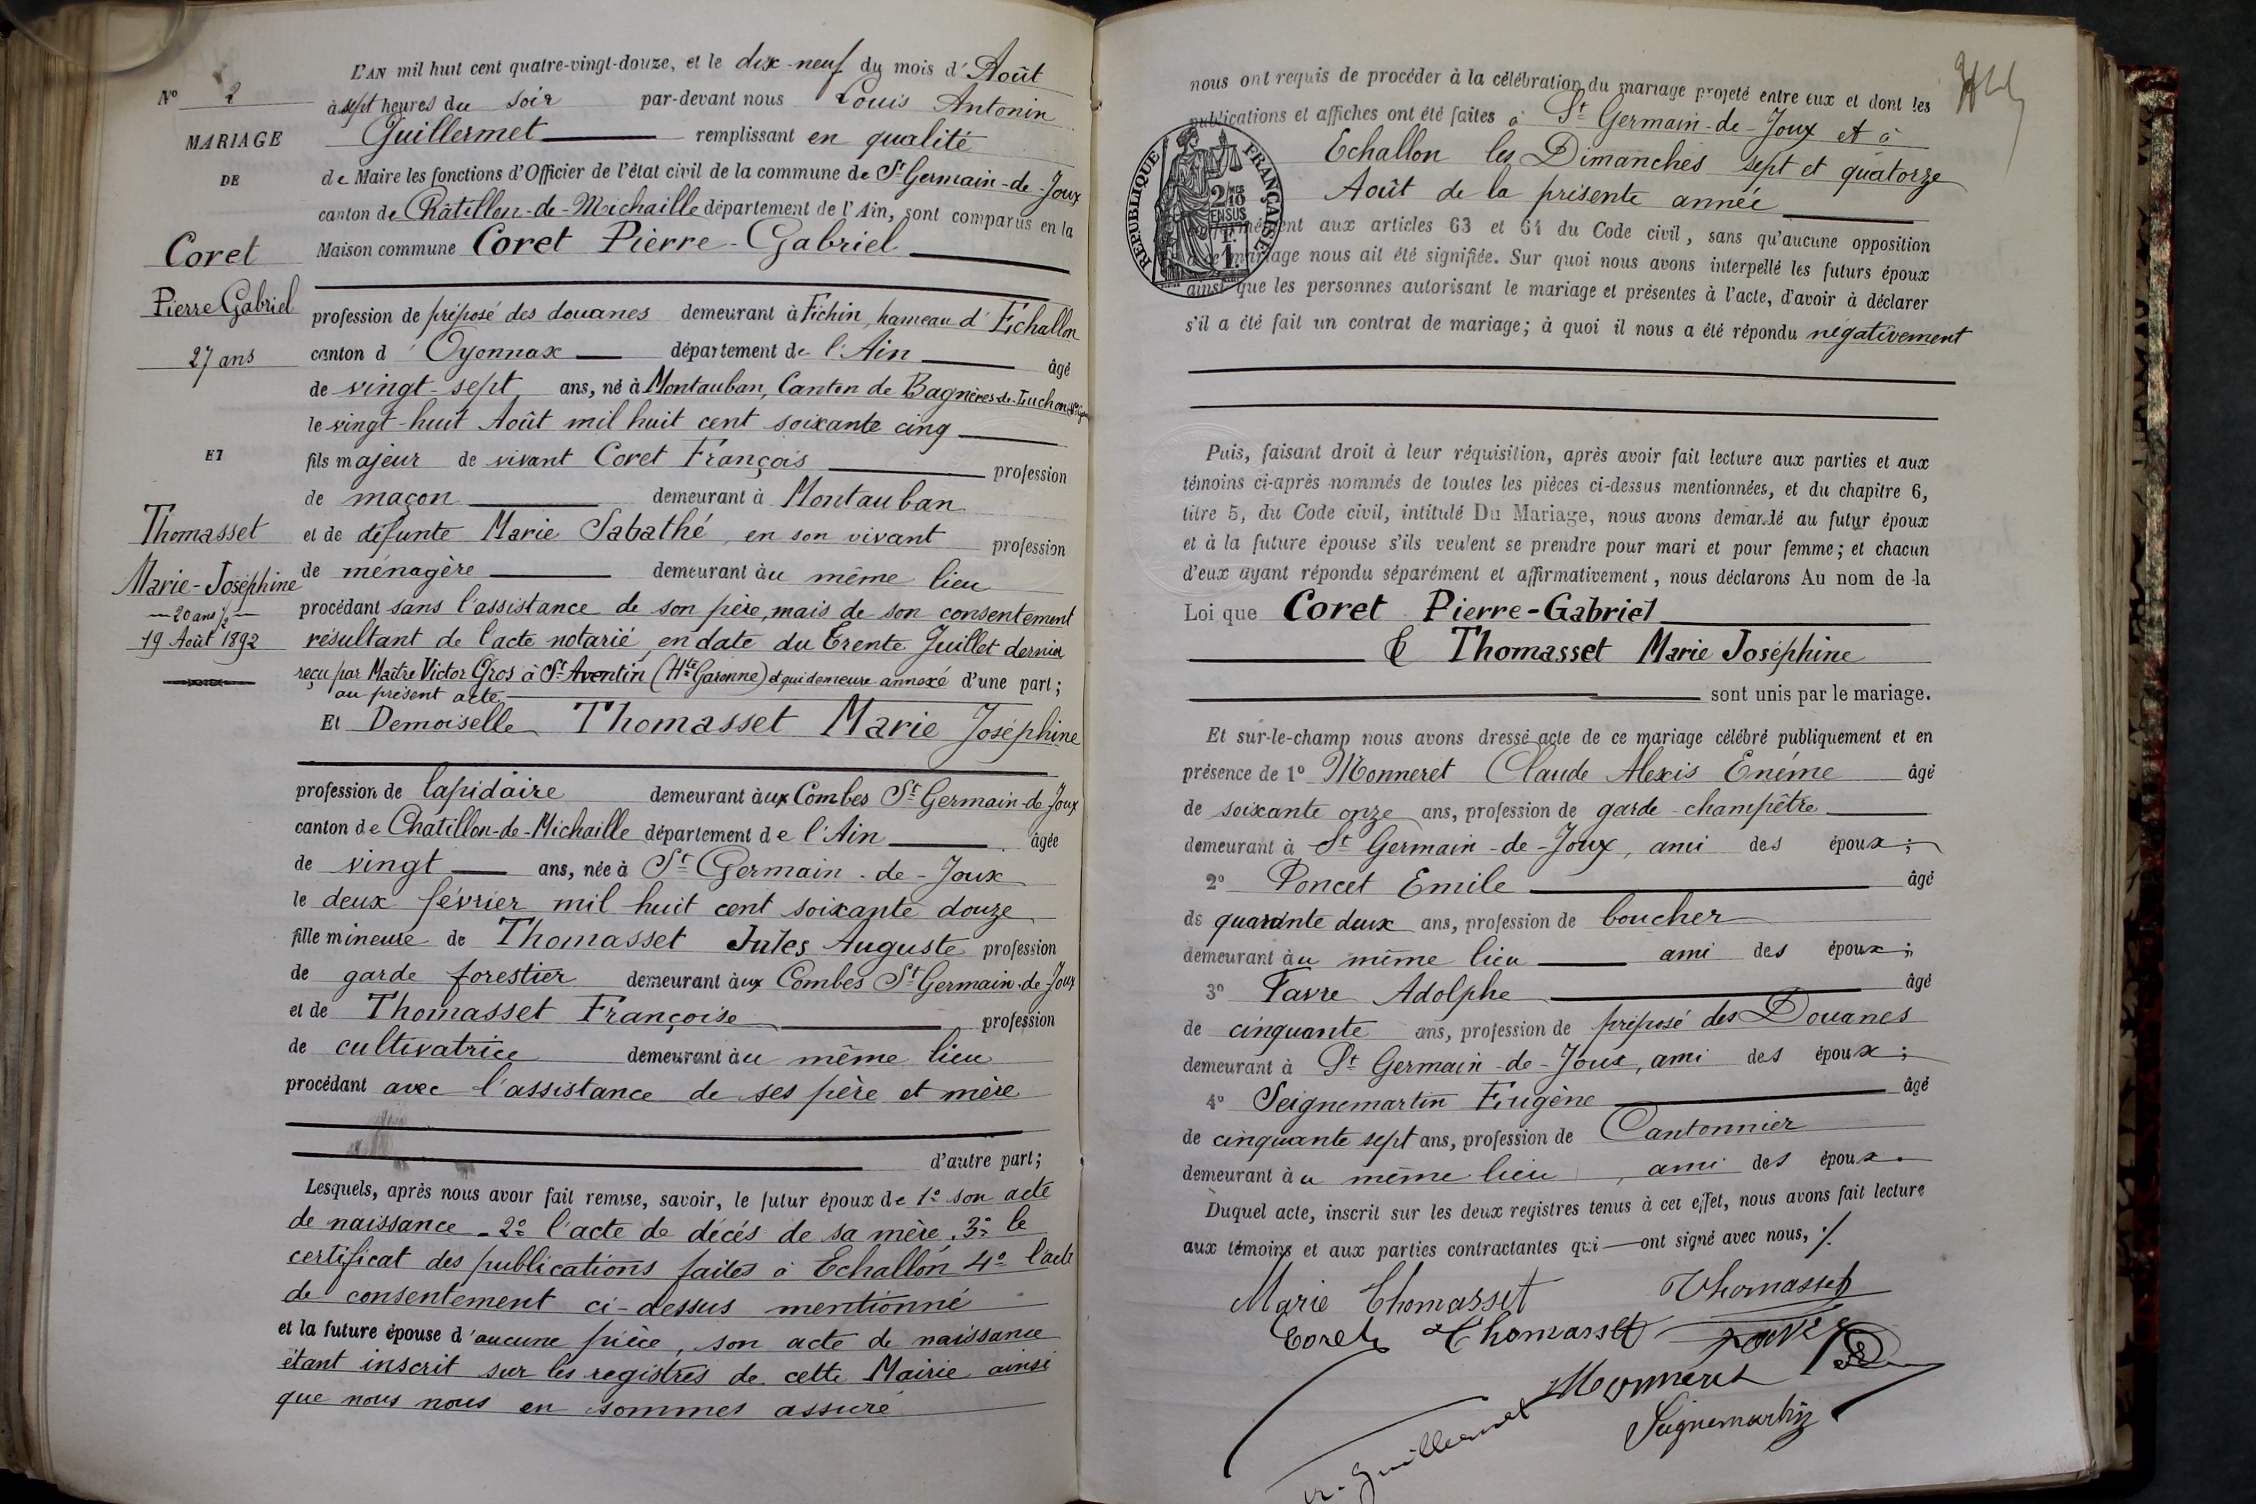 L'AN mil huit cent quatre-vingt-douze, et le dix-neuf du mois d'Août
N° 2
à sept heures du soir par-devant nous Louis Antonin
MARIAGE
Guillermet remplissant en qualité
DE
de Maire les fonctions d'Officier de l'état civil de la commune de St Germain-de-Joux
canton de Châtillon-de-Michaille département de l'Ain, sont comparus en la
Coret
Maison commune Coret Pierre-Gabriel
Pierre Gabriel
profession de préposé des douanes demeurant à Fichin, hameau d'Echallon
27 ans
canton d'Oyonnax département de l'Ain âgé
de vingt-sept ans, né à Montauban, Canton de Bagnères-de-Luchon
le vingt-huit Août mil huit cent soixante cinq
ET
fils majeur de vivant Coret François profession
de maçon demeurant à Montauban
Thomasset
et de défunte Marie Sabathé, en son vivant profession
Marie-Joséphine
de ménagère demeurant au même lieu
20 ans ½
procédant sans l'assistance de son père, mais de son consentement
19 Août 1892
résultant de l'acte notarié, en date du trente Juillet dernier
reçu par Maître Victor Gros à St Aventin (Hte Garonne) et qui demeure annexé d'une part;
au présent acte
Et Demoiselle Thomasset Marie Joséphine
profession de lapidaire demeurant aux Combes St Germain-de-Joux
canton de Chatillon-de-Michaille département de l'Ain âgée
de vingt ans, née à St Germain-de-Joux
le deux février mil huit cent soixante douze
fille mineure de Thomasset Jules Auguste profession
de garde forestier demeurant aux Combes St Germain-de-Joux
et de Thomasset Françoise profession
de cultivatrice demeurant au même lieu
procédant avec l'assistance de ses père et mère
d'autre part;
Lesquels, après nous avoir fait remise, savoir, le futur époux de 1° son acte
de naissance - 2° l'acte de décés de sa mère, 3° le
certificat des publications faites à Echallon 4° l'acte
de consentement ci-dessus mentionné
et la future épouse d'aucune pièce, son acte de naissance
étant inscrit sur les registres de cette Mairie ainsi
que nous nous en sommes assuré
nous ont requis de procéder à la célébration du mariage projeté entre eux et dont les
publications et affiches ont été faites à St Germain-de-Joux et à
Echallon les Dimanches sept et quatorze
Août de la présente année
RÉPUBLIQUE FRANÇAISE
2/10 EN SUS
1 F.
aux articles 63 et 64 du Code civil, sans qu'aucune opposition
à ce mariage nous ait été signifiée. Sur quoi nous avons interpellé les futurs époux
ainsi que les personnes autorisant le mariage et présentes à l'acte, d'avoir à déclarer
s'il a été fait un contrat de mariage; à quoi il nous a été répondu négativement
Puis, faisant droit à leur réquisition, après avoir fait lecture aux parties et aux
témoins ci-après nommés de toutes les pièces ci-dessus mentionnées, et du chapitre 6,
titre 5, du Code civil, intitulé Du Mariage, nous avons demandé au futur époux
et à la future épouse s'ils veulent se prendre pour mari et pour femme; et chacun
d'eux ayant répondu séparément et affirmativement, nous déclarons Au nom de la
Loi que Coret Pierre-Gabriel
& Thomasset Marie Joséphine
sont unis par le mariage.
Et sur-le-champ nous avons dressé acte de ce mariage célébré publiquement et en
présence de 1° Monneret Claude Alexis Enéme âgé
de soixante onze ans, profession de garde-champêtre
demeurant à St Germain-de-Joux, ami des époux;
2° Poncet Emile âgé
de quarante deux ans, profession de boucher
demeurant au même lieu ami des époux;
3° Favre Adolphe âgé
de cinquante ans, profession de préposé des Douanes
demeurant à St Germain-de-Joux, ami des époux;
4° Seignemartin Eugène âgé
de cinquante sept ans, profession de Cantonnier
demeurant au même lieu, ami des époux.
Duquel acte, inscrit sur les deux registres tenus à cet effet, nous avons fait lecture
aux témoins et aux parties contractantes qui ont signé avec nous, ./.
Marie Thomasset Thomasset
Coret Thomasset Favre
Monneret
Guillermet Seignemartin